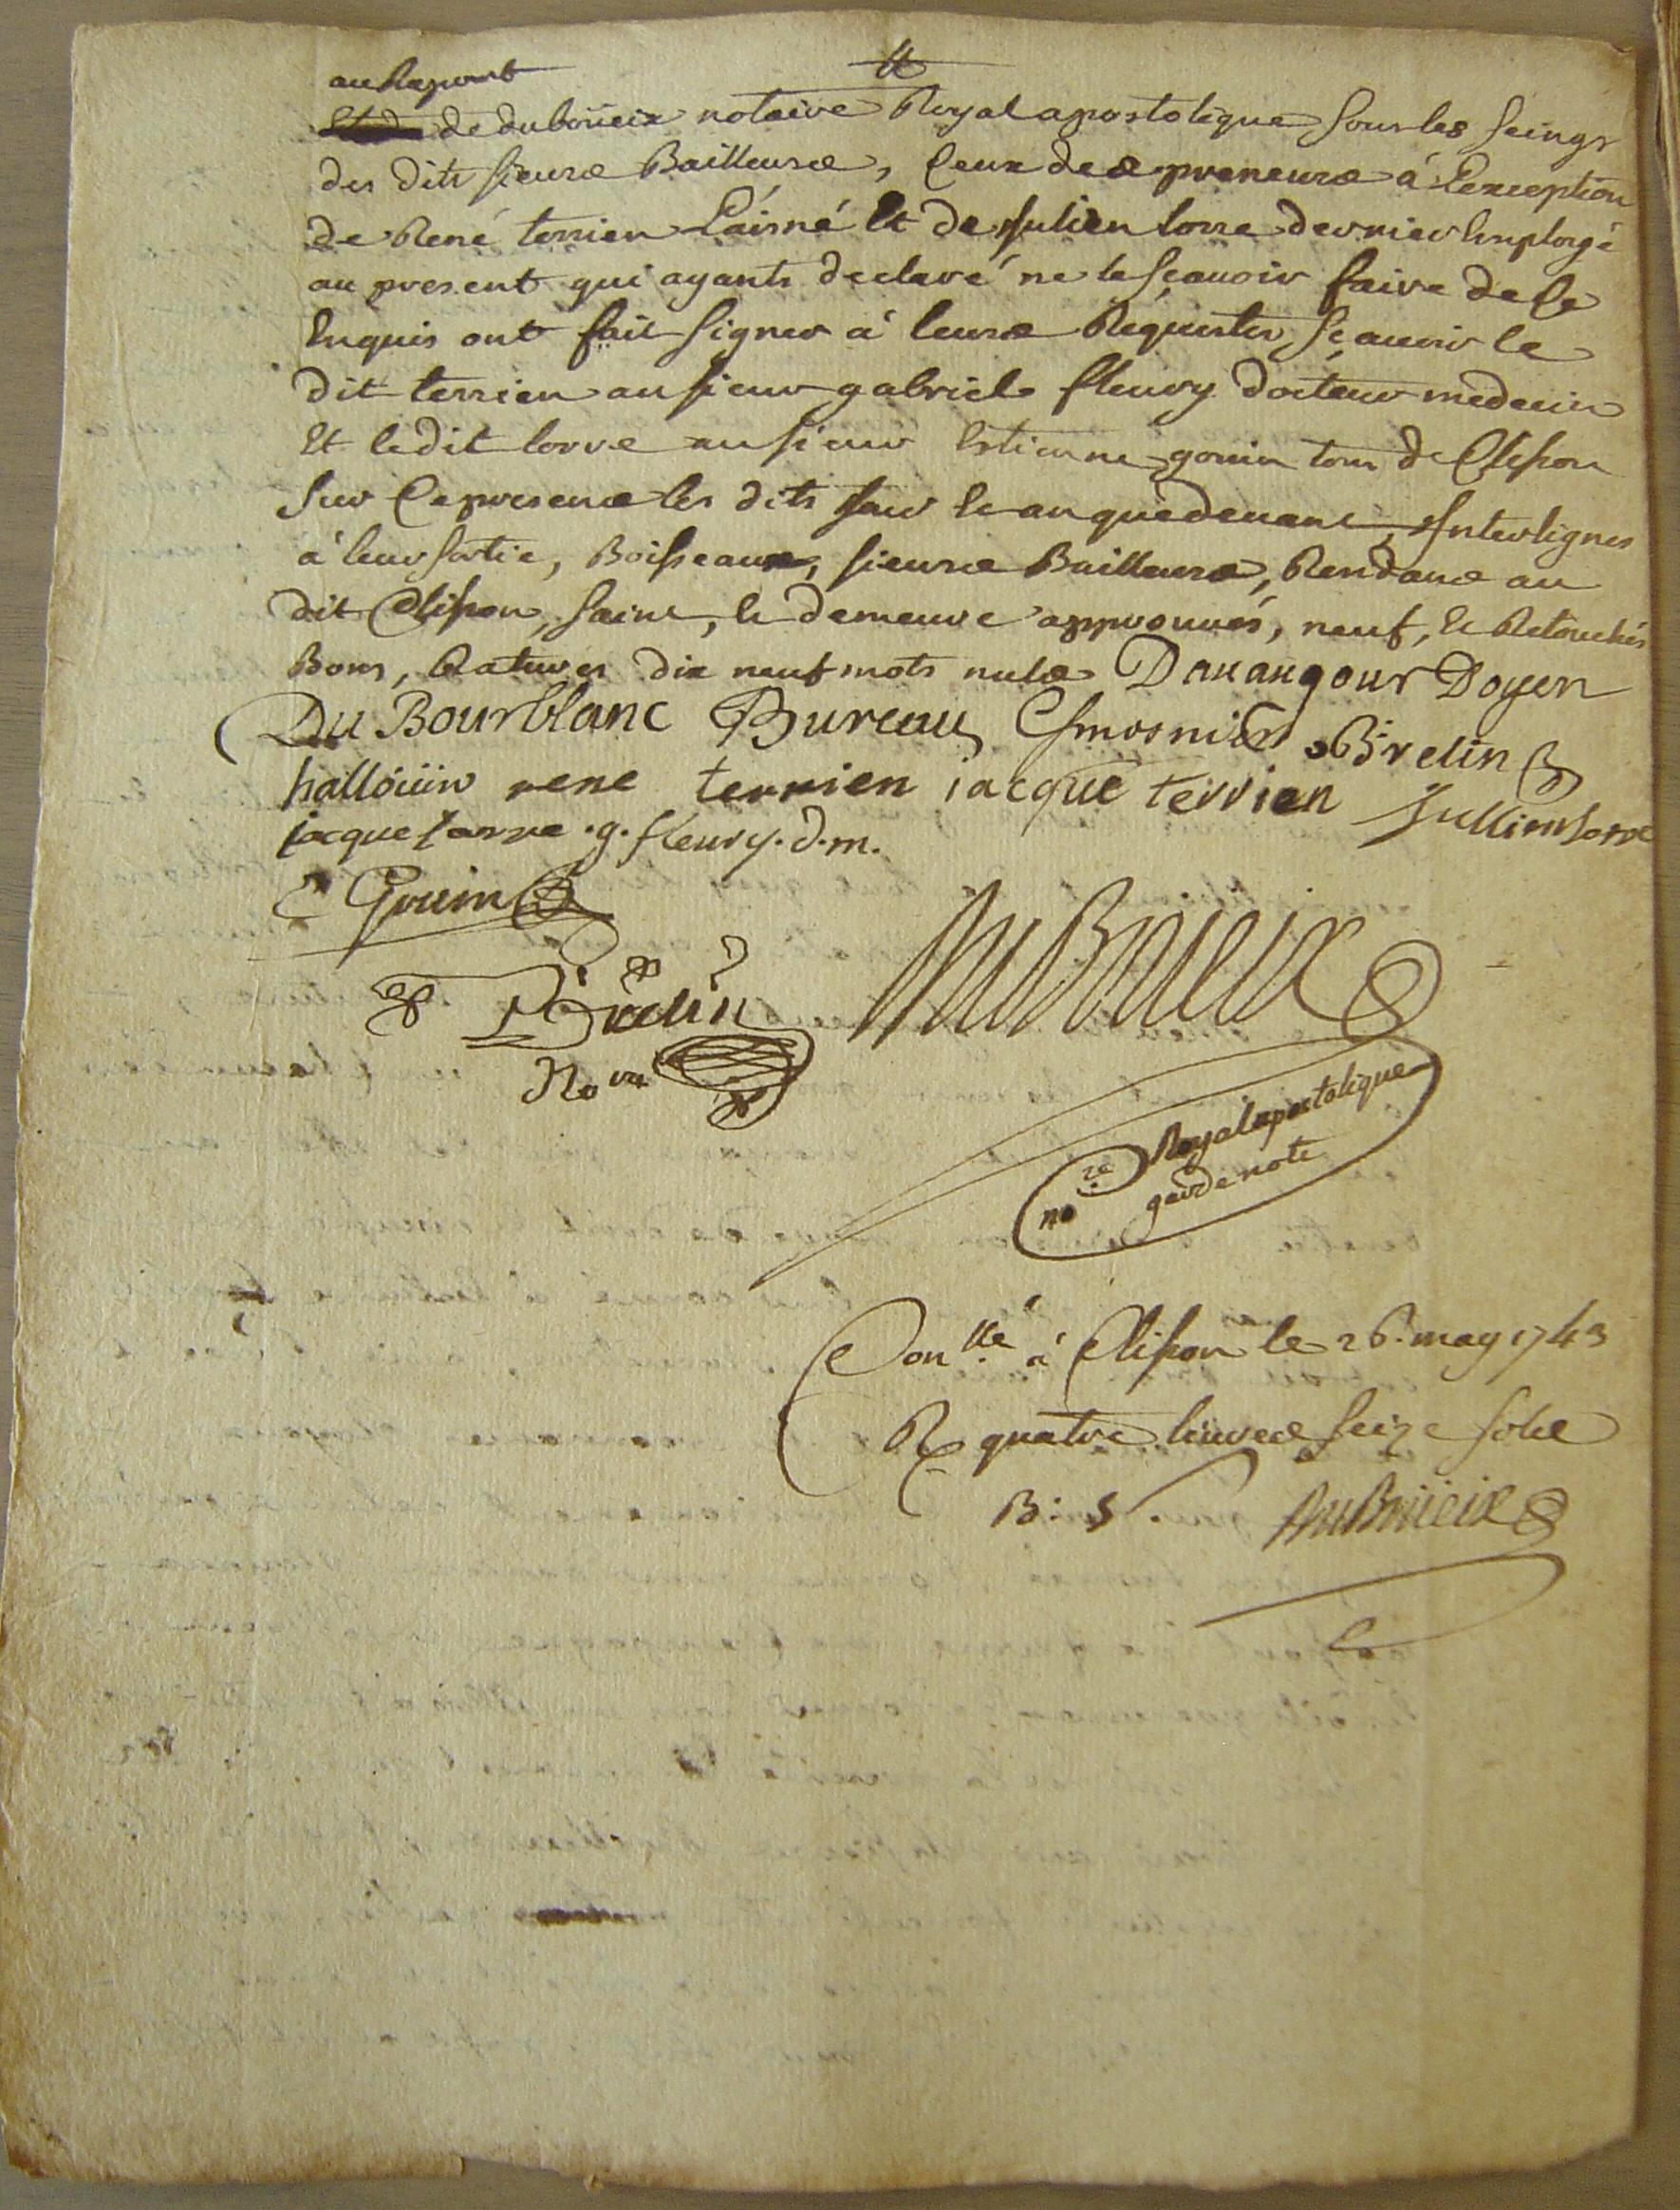 au Raport
de duboüeix notaire Royal apostolique sous les seings
des dits sieurs Bailleurs, Ceux des preneurs à Lexception
de René terrien Láisné Et de Julien lorre dernier Employé
au present qui ayants declaré ne le sçauoir faire de Ce
Enquis ont fait signer à leurs Requestes, sçauoir le
dit terrien au sieur gabriel fleury docteur medecin
Et ledit lorre au sieur Estienne gouin tous de Clisson
sur Ce presence les dits sauf le anquedenant, Interlignes
à leur sortie, Boisseaux, sieurs Bailleurs, Rendans au
dit Clisson, saint, le demeure approuués, neuf, Et Retouchés
Bons, Ratures dix neuf mots nuls Dauaugour Doyen
Du Bourblanc Bureau Esmosnier Birelin
halloüin rene terrien iacque terrien Jullien Lorre
jacque Lorre .g. fleury. d. m.
E Gouin
Birelin
No re
duBoüeix
no re Royal apostolique
garde note
Con llé à Clisson le 26. may 1743
R quatre liures seize sols
B: S. duBoüeix